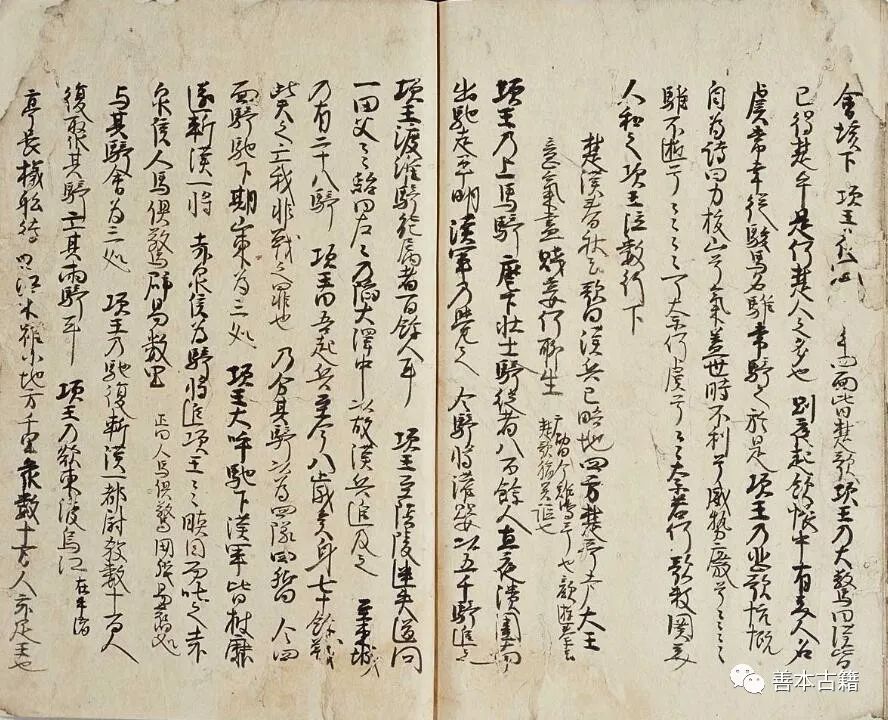 會垓下 項王 四面皆楚歌項王乃大驚曰漢皆
已得楚乎是何楚人之多也 則夜起飲帳中有美人名
虞常幸從駿馬名騅常騎之於是項王乃悲歌忼慨
自為詩曰力拔山兮氣蓋世時不利兮威勢廢兮々々々々
騅不逝兮々々々可奈何虞兮々々奈若何歌數闋美
人和之項王泣數行下
楚漢春秋云歌曰漢兵已略地四方楚歌声大王
意氣盡賤妾何聊生 應劭曰今雞鳴哥也顏遊秦云
楚歌猶吳謳也
項王乃上馬騎麾下壮士騎從者八百餘人直夜潰圍南
出馳走平明漢軍乃覺之 令騎將灌嬰以五千騎追之
項王渡淮騎能属者百餘人耳 項王至陰陵迷失道問
一田父々紿曰左々乃陷大澤中以故漢兵追及之 至東城
乃有二十八騎 項王曰吾起兵至今八歲矣身七十餘戰
此天之亡我非戰之罪也 乃分其騎以為四隊四嚮 令四
面騎馳下期山東為三処 項王大呼馳下漢軍皆披靡
遂斬漢一將 赤泉侯為騎將追項王々瞋目而叱之赤
泉侯人馬俱驚辟易數里 正曰人馬俱驚開張易舊処
与其騎會為三処 項王乃馳復斬漢一都尉殺數十百人
復聚其騎亡其兩騎耳 項王乃欲東渡烏江 在牛渚
亭長檥舩待 曰江東雖小地方千里衆數十万人亦足王也
善本古籍